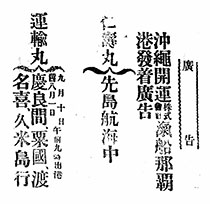 廣告
沖繩開運株式會社滊船那覇
港發着廣告
仁壽丸 先島航海中
運輸丸
九月十日
八月一日
出港
慶良間、粟國、渡
名喜、久米島行